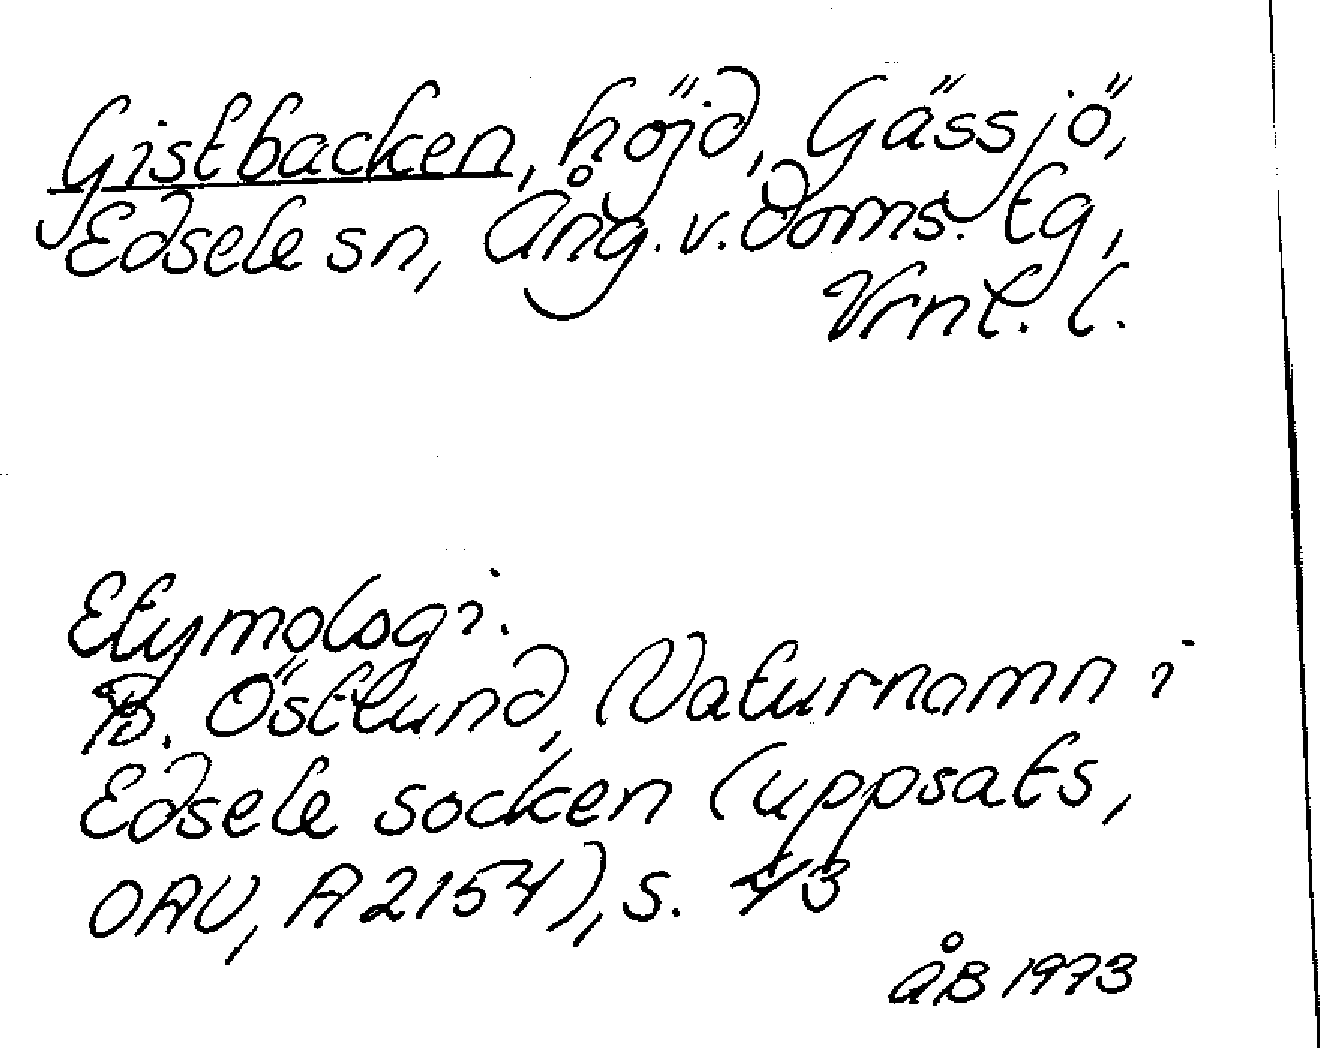 Gistbacken, höjd, Gässjö,
Edsele sn, Ång. v. doms. tg,
Vrnl. l.
Etymologi.
B. Östlund, Naturnamn i
Edsele socken (uppsats,
OAU, A 2154), s. 43
ÅB 1973